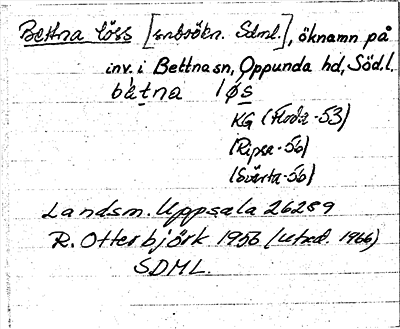 Bettna löss [snbsökn. Sdml.], öknamn på
inv. i Bettna sn, Oppunda hd, Södl.
bètna løs
KG (Floda -53)
(Ripsa -56)
(Svärta -56)
Landsm. Uppsala 26289
R. Otterbjörk 1956 (utxd. 1966)
SDML.